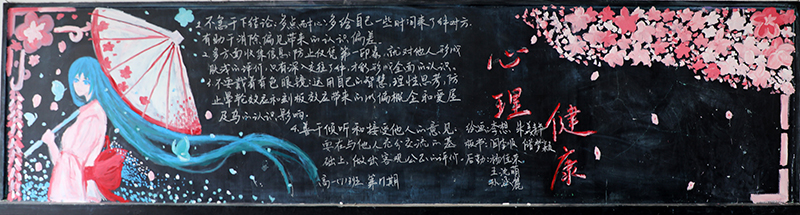 1.不急于下结论：多点耐心，多给自己一些时间来了解对方，
有助于消除偏见带来的认识偏差。
2.多方面收集信息：防止仅凭第一印象，就对他人形成
肤浅的评价，只有深入去程了解，才能形成全面的认识。
3.不要戴着有色眼镜：运用自己的智慧，理性思考，防
止晕轮效应和刻板效应带来的以偏概全和爱屋
及乌的认识影响。
4.善于倾听和接受他人的意见，
要在与他人充分交流的基
础上，做出客观公正的评价。
高一(13)班 第 期
心理
健康
绘画：李想
版书：
后勤：